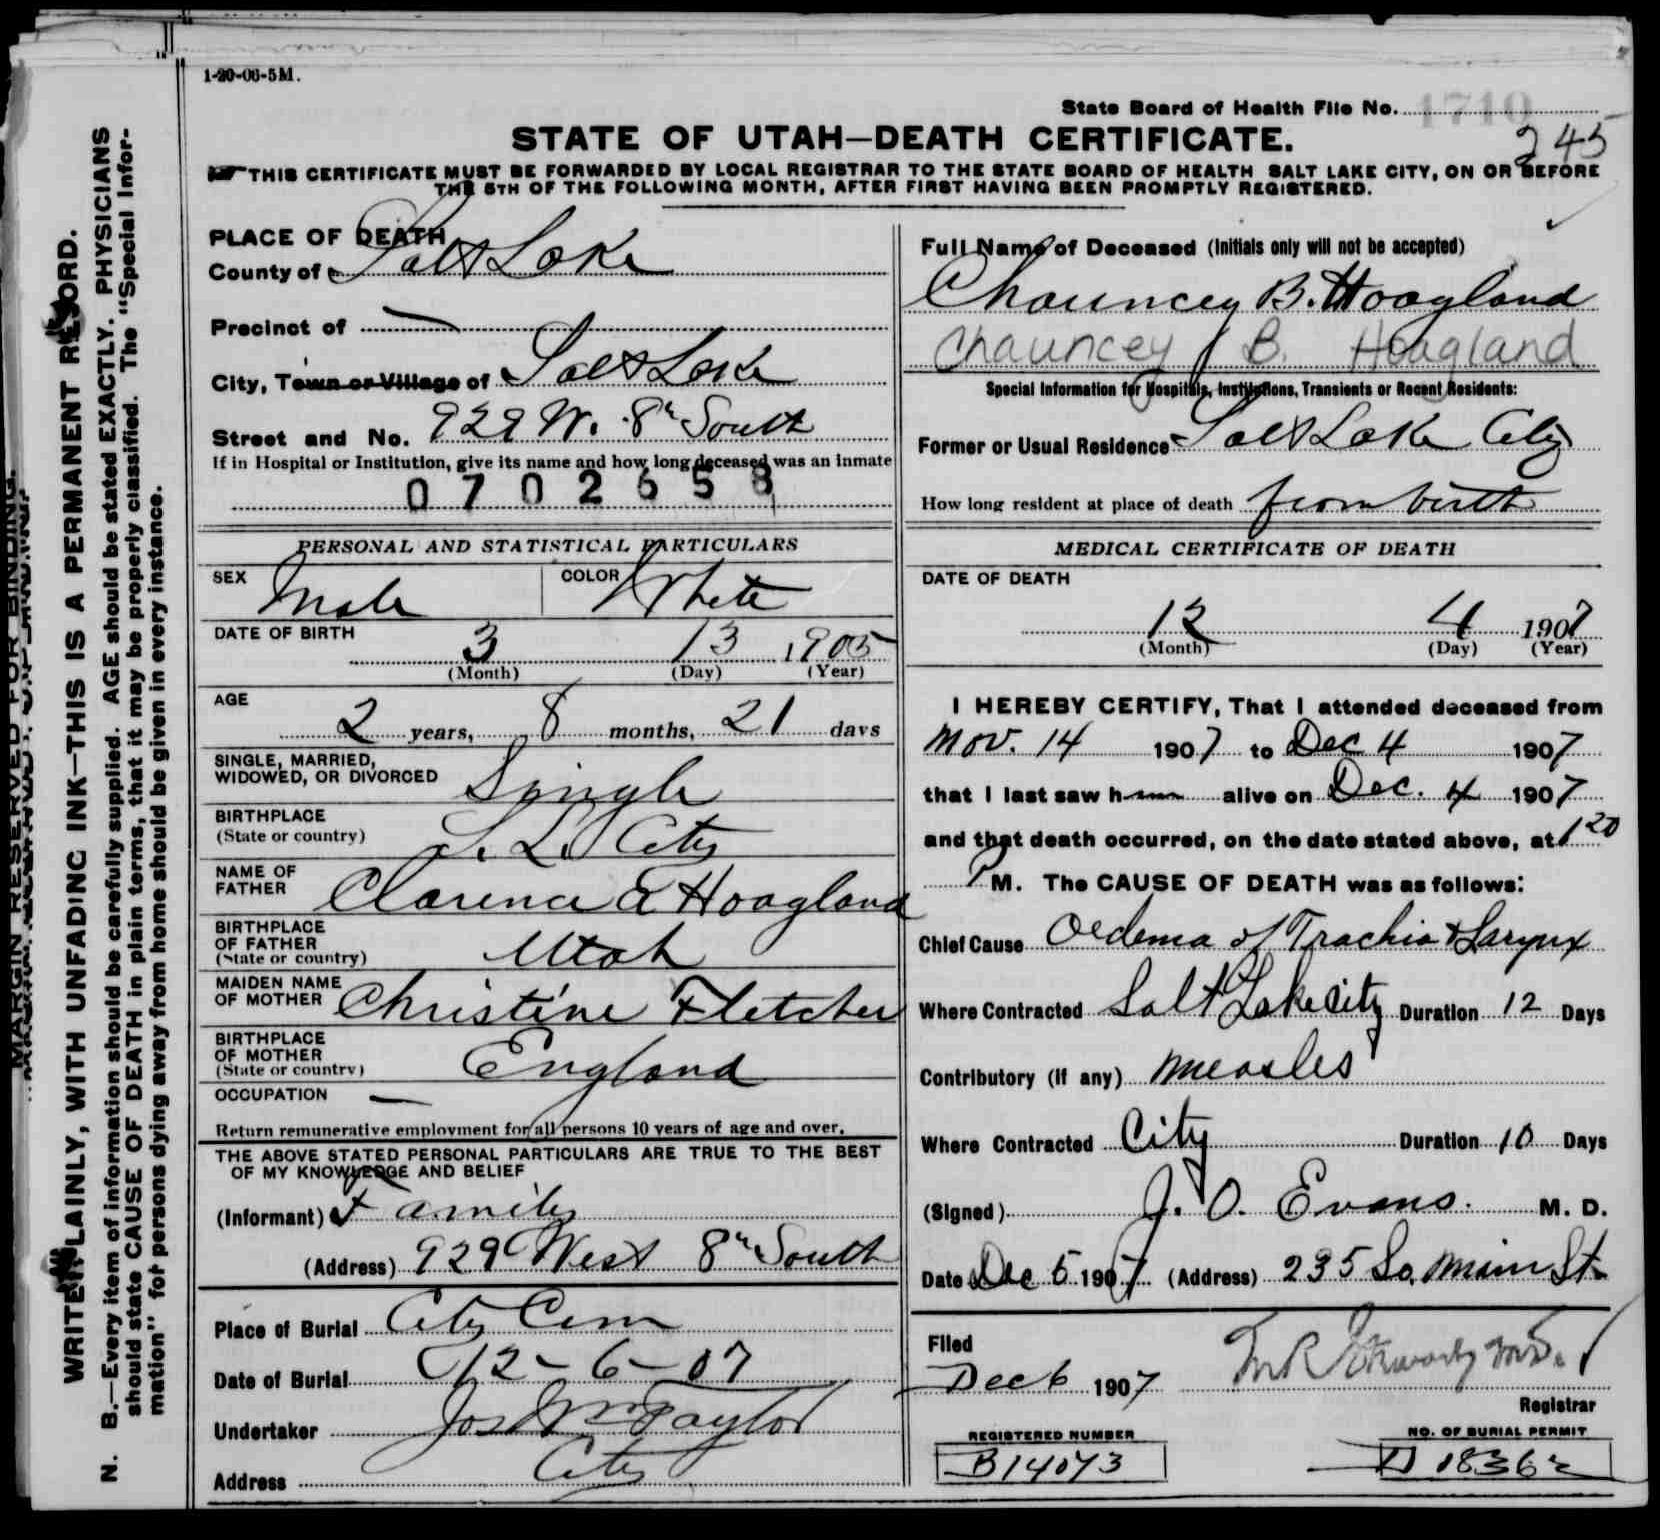 1-20-06-5M.
State Board of Health File No. 1710
245
STATE OF UTAH—DEATH CERTIFICATE.
THIS CERTIFICATE MUST BE FORWARDED BY LOCAL REGISTRAR TO THE STATE BOARD OF HEALTH SALT LAKE CITY, ON OR BEFORE
THE 5TH OF THE FOLLOWING MONTH, AFTER FIRST HAVING BEEN PROMPTLY REGISTERED.
PLACE OF DEATH
County of Salt Lake
Precinct of —
City, Town or Village of Salt Lake
Street and No. 929 W. 8th South
If in Hospital or Institution, give its name and how long deceased was an inmate
0702658
PERSONAL AND STATISTICAL PARTICULARS
SEX Male COLOR White
DATE OF BIRTH
3 13 1905
(Month) (Day) (Year)
AGE
2 years, 8 months, 21 days
SINGLE, MARRIED,
WIDOWED, OR DIVORCED Single
BIRTHPLACE
(State or country) S. L. City
NAME OF
FATHER Clarence E Hoagland
BIRTHPLACE
OF FATHER
(State or country) Utah
MAIDEN NAME
OF MOTHER Christine Fletcher
BIRTHPLACE
OF MOTHER
(State or country) England
OCCUPATION —
Return remunerative employment for all persons 10 years of age and over.
THE ABOVE STATED PERSONAL PARTICULARS ARE TRUE TO THE BEST
OF MY KNOWLEDGE AND BELIEF
(Informant) Family
(Address) 929 West 8th South
Place of Burial City Cem
Date of Burial 12-6-07
Undertaker Jos Wm Taylor
Address City
Full Name of Deceased (Initials only will not be accepted)
Chauncey B. Hoagland
Chauncey B. Hoagland
Special Information for Hospitals, Institutions, Transients or Recent Residents:
Former or Usual Residence Salt Lake City
How long resident at place of death from birth
MEDICAL CERTIFICATE OF DEATH
DATE OF DEATH
12 4 1907
(Month) (Day) (Year)
I HEREBY CERTIFY, That I attended deceased from
Nov. 14 1907 to Dec 4 1907
that I last saw him alive on Dec. 4 1907
and that death occurred, on the date stated above, at 1 20
P M. The CAUSE OF DEATH was as follows:
Chief Cause Oedema of Trachia & Larynx
Where Contracted Salt Lake City Duration 12 Days
Contributory (if any) Measles
Where Contracted City Duration 10 Days
(Signed) J. O. Evans. M. D.
Date Dec 5 1907 (Address) 235 So. Main St
Filed
Dec 6 1907
Registrar
REGISTERED NUMBER
B14073
NO. OF BURIAL PERMIT
D 18362
MARGIN RESERVED FOR BINDING.
WRITE PLAINLY, WITH UNFADING INK—THIS IS A PERMANENT RECORD.
N. B.—Every item of information should be carefully supplied. AGE should be stated EXACTLY. PHYSICIANS
should state CAUSE OF DEATH in plain terms, that it may be properly classified. The "Special Infor-
mation" for persons dying away from home should be given in every instance.